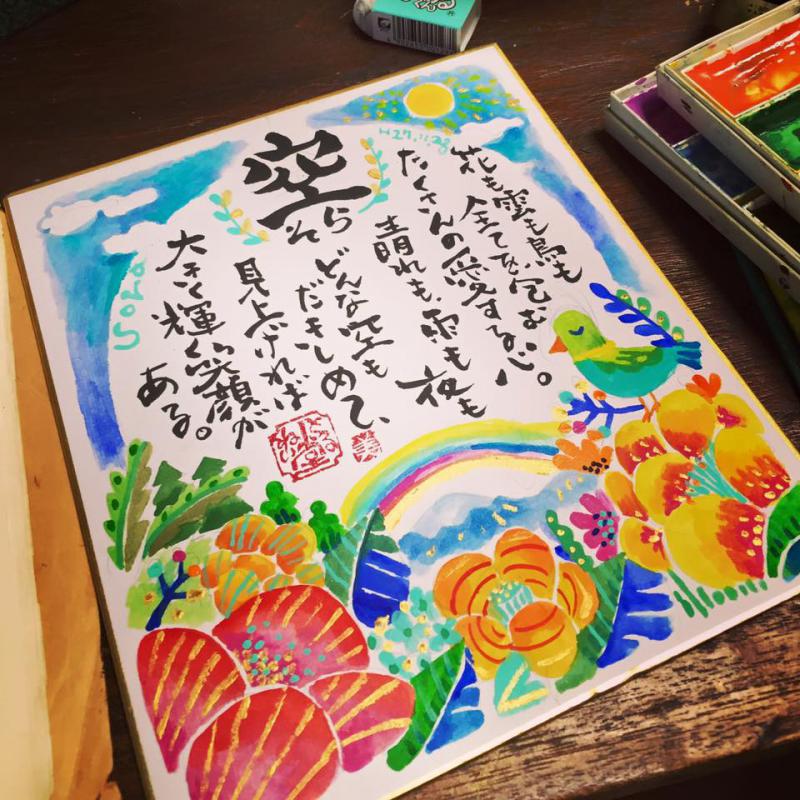 空
そら
H27.11.28
花も雲も鳥も
全てを包む
たくさんの愛する心。
晴れも、雨も夜も
どんな空も
だきしめて、
見上げれば
大きく輝く笑顔が
ある。
Sora